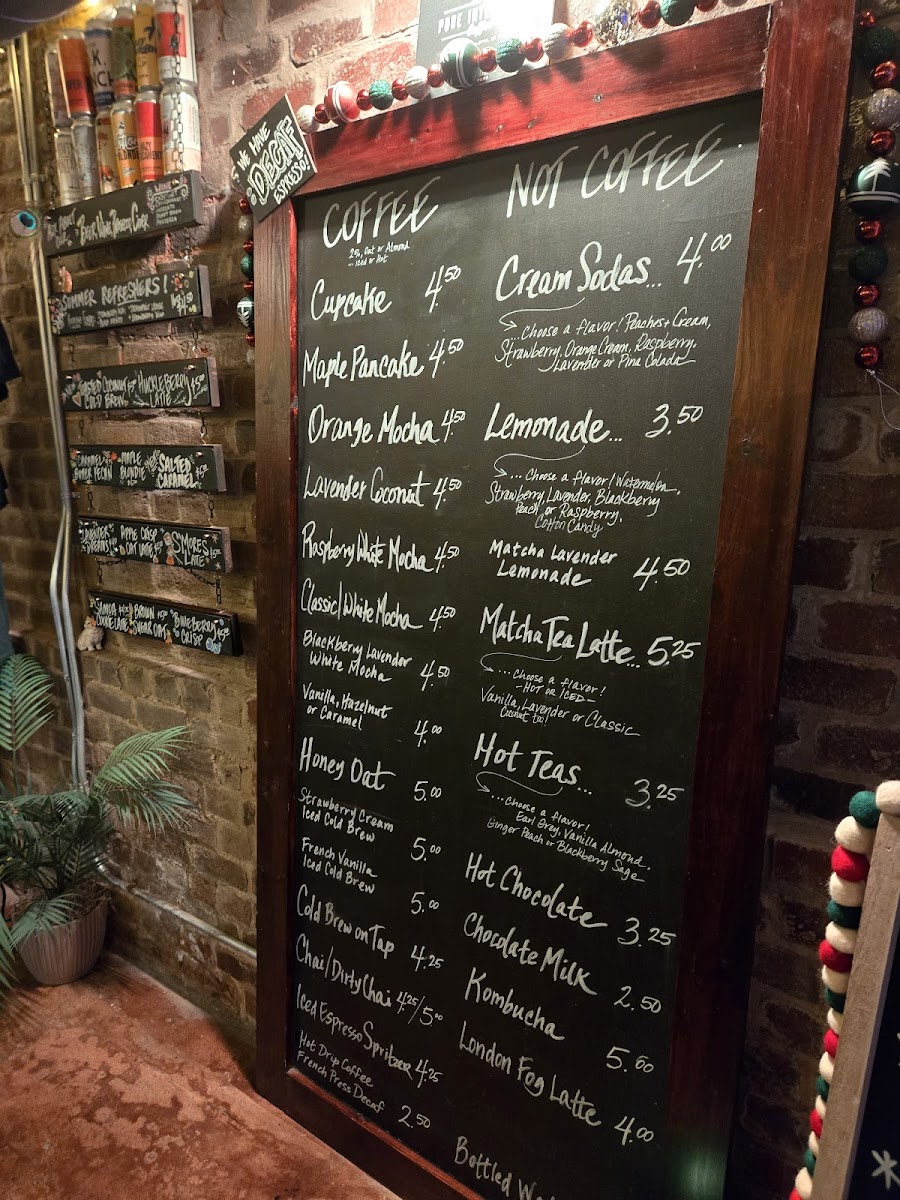 PURE
WE HAVE
DECAF
ESPRESSO!
WINE
BEER WINE
SUMMER REFRESHERS!
TOASTED COCONUT
COLD BREW
HUCKLEBERRY
LATTE
CARAMEL
BUTTER PECAN
MAPLE
BLONDIE
SALTED
CARAMEL
LAVENDER
DREAMS
APPLE CRISP
OAT LATTE
S'MORES
LATTE
SAMOA
COOKIE LATTE
BROWN
SUGAR OAT
BLUEBERRY
CRISP
COFFEE
2%, Oat or Almond
... iced or Hot
Cupcake 4.50
Maple Pancake 4.50
Orange Mocha 4.50
Lavender Coconut 4.50
Raspberry White Mocha 4.50
Classic/White Mocha 4.50
Blackberry Lavender
White Mocha 4.50
Vanilla, Hazelnut
or Caramel 4.00
Honey Oat 5.00
Strawberry Cream
Iced Cold Brew 5.00
French Vanilla
Iced Cold Brew 5.00
Cold Brew on Tap 4.25
Chai/Dirty Chai 4.25/5.00
Iced Espresso Spritzer 4.25
Hot Drip Coffee
French Press Decaf 2.50
NOT COFFEE
Cream Sodas... 4.00
...Choose a flavor! Peaches + Cream,
Strawberry, Orange Cream, Raspberry,
Lavender or Pina Colada
Lemonade... 3.50
...Choose a flavor! Watermelon,
Strawberry, Lavender, Blackberry
Peach, or Raspberry,
Cotton Candy
Matcha Lavender
Lemonade 4.50
Matcha Tea Latte... 5.25
...Choose a flavor!
-HOT or ICED-
Vanilla, Lavender or Classic
Coconut too!
Hot Teas... 3.25
...Choose a flavor!
Earl Grey, Vanilla Almond,
Ginger Peach or Blackberry Sage
Hot Chocolate 3.25
Chocolate Milk 2.50
Kombucha 5.00
London Fog Latte 4.00
Bottled